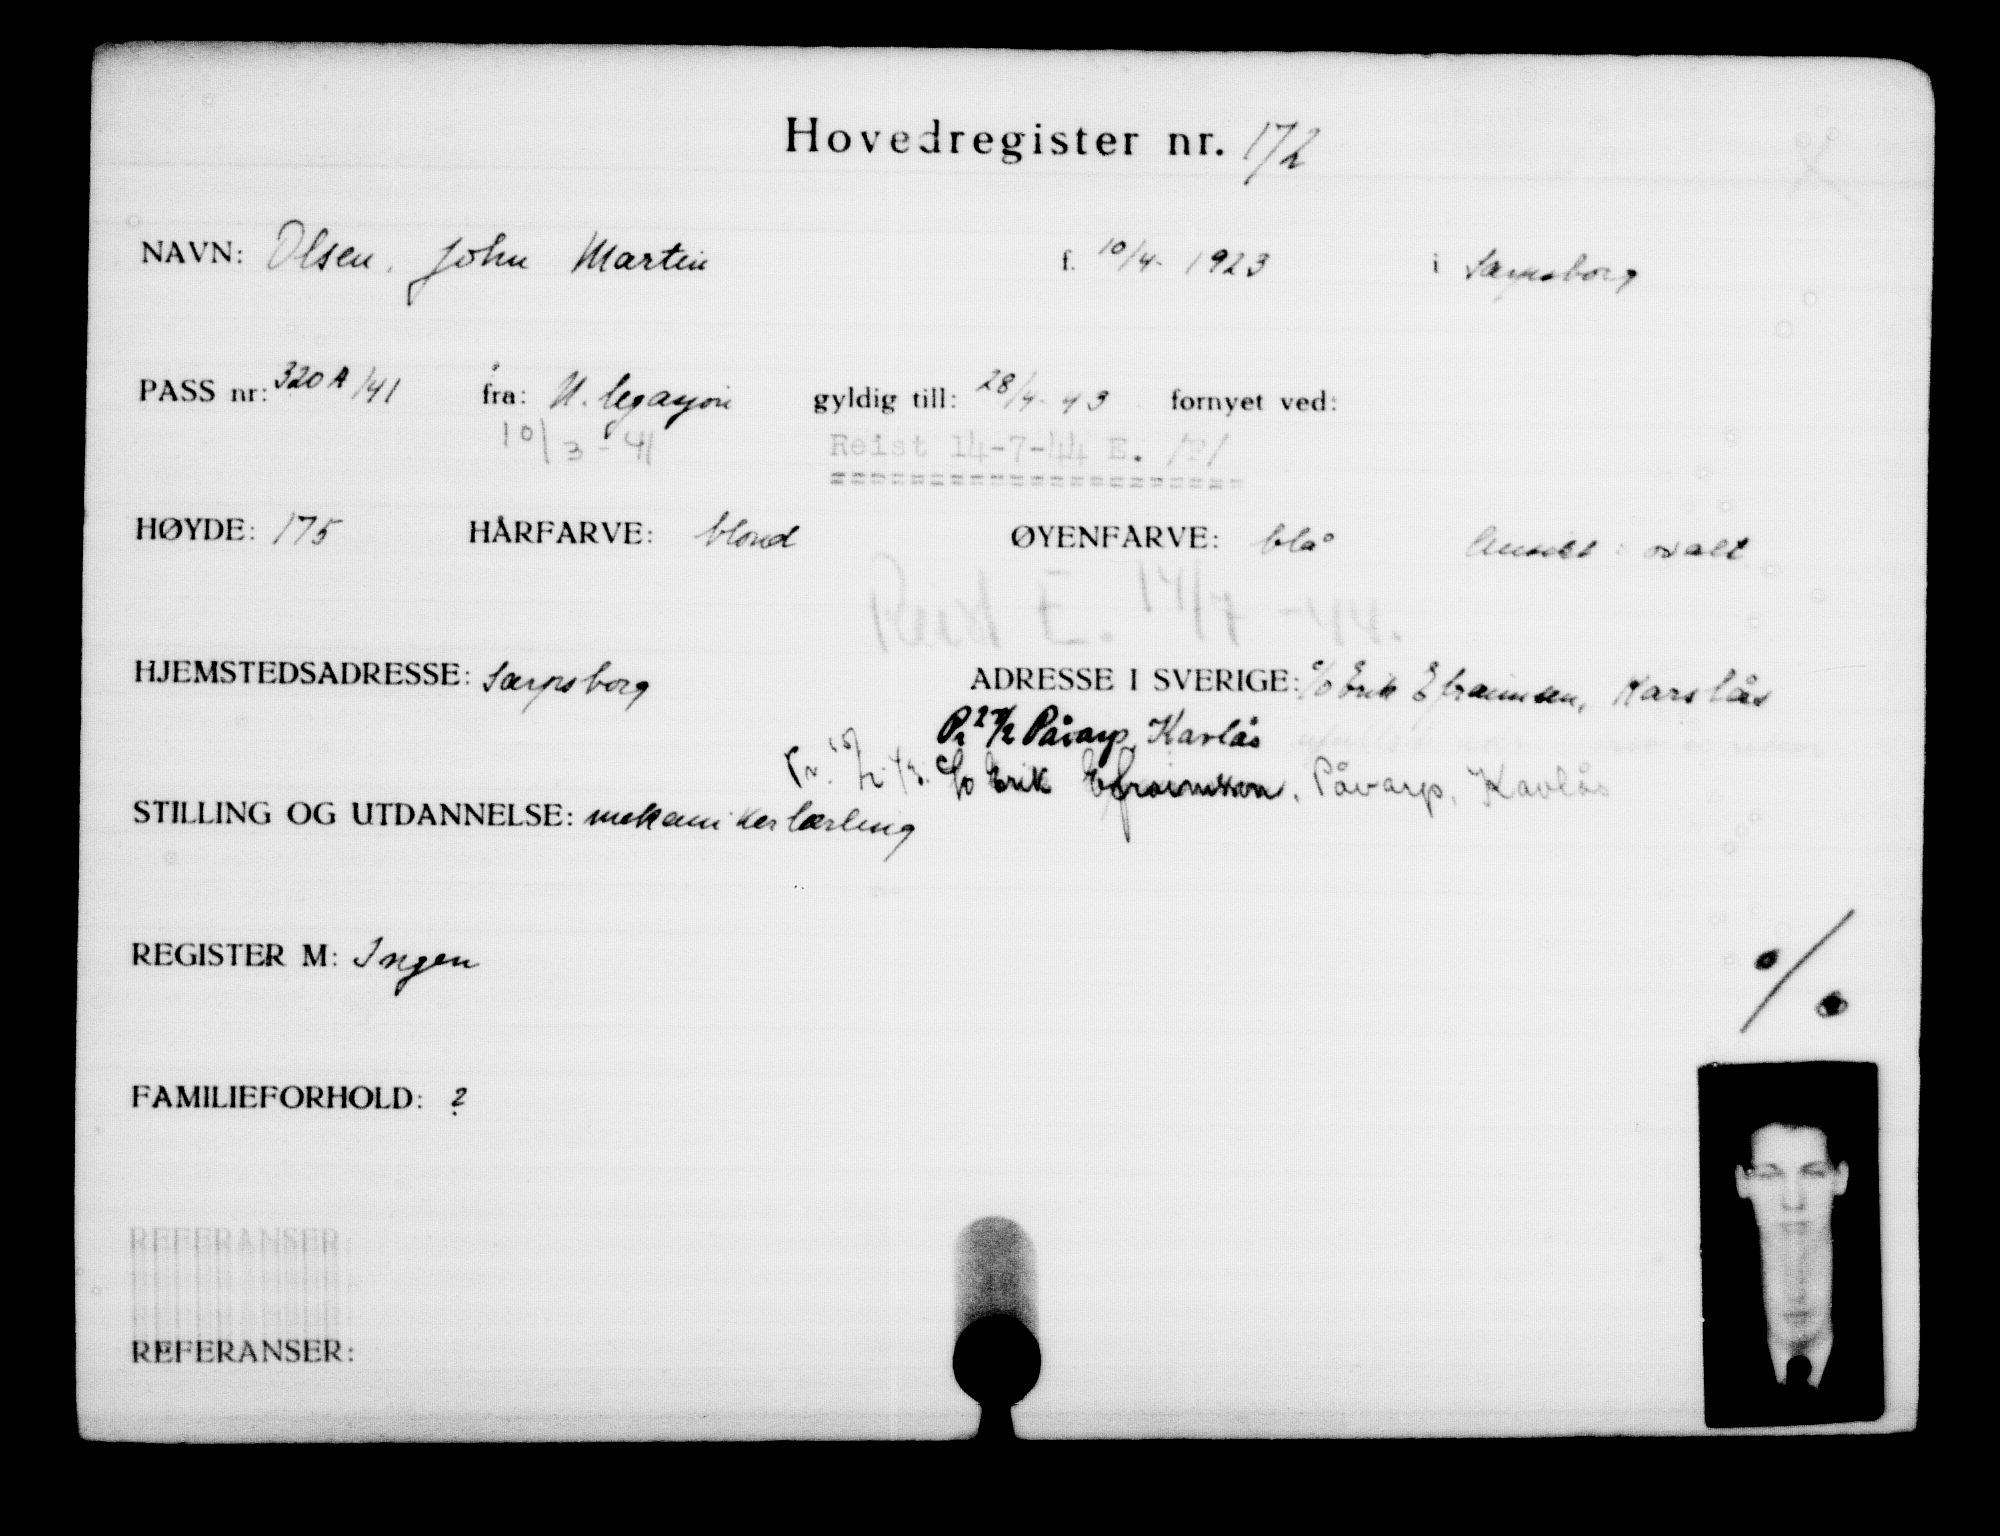 Hovedregister nr. 172
NAVN: Olsen, John Martin f. 10/4- 1923 i Sarpsborg
PASS nr: 320A/41 fra: N. legasjon gyldig till: 28/4-43 fornyet ved:
10/3-41 Reist 14-7-44 E. /F/
HØYDE: 175 HÅRFARVE: blond ØYENFARVE: blå Ansikt: ovalt
Reist E. 14/7-44.
HJEMSTEDSADRESSE: Sarpsborg ADRESSE I SVERIGE: c/o Erik Efraimsen, Karslås
Påvarp, Kavlås
c/o Erik Efraimsson, Påvarp, Kavlås
STILLING OG UTDANNELSE: mekanikerlærling
REGISTER M: Ingen
%
FAMILIEFORHOLD: ?
REFERANSER
REFERANSER: